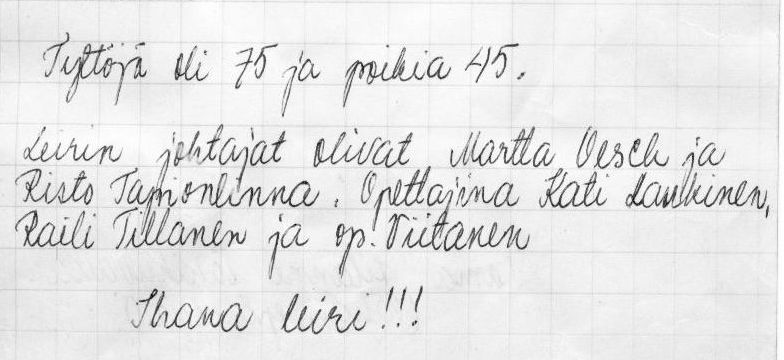 Tyttöjä oli 75 ja poikia 45.
Leirin johtajat olivat Martta Oesch ja
Risto Tapionlinna. Opettajina Kati Laukinen,
Raili Tillanen ja op. Viitanen
Ihana leiri!!!